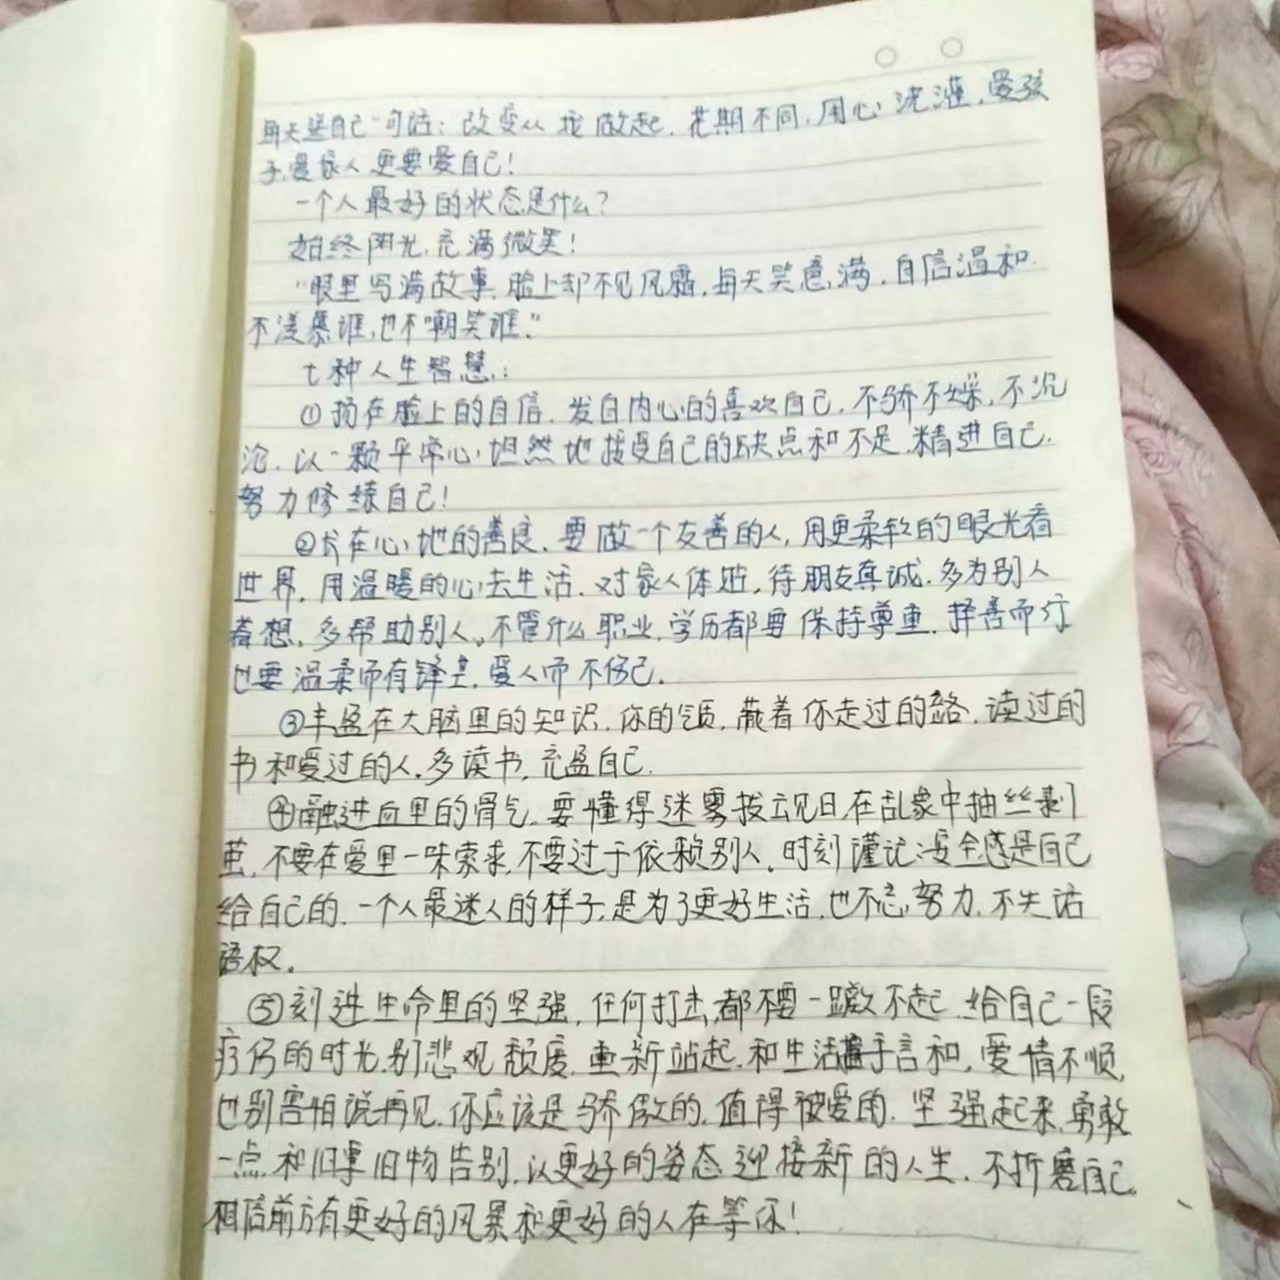 每天送自己一句话：改变从我做起，花期不同，用心浇灌，爱孩
子爱家人更要爱自己！
一个人最好的状态是什么？
始终阳光，充满微笑！
“眼里写满故事，脸上却不见风霜，每天笑意满，自信温和.
不羡慕谁，也不嘲笑谁。”
七种人生智慧：
①扬在脸上的自信，发自内心的喜欢自己，不骄不燥，不沉
沦，以一颗平常心坦然地接受自己的缺点和不足，精进自己，
努力修练自己！
②长在心地的善良，要做一个友善的人，用更柔软的眼光看
世界，用温暖的心去生活，对家人体贴，待朋友真诚，多为别人
着想，多帮助别人。不管什么职业，学历都要保持尊重，择善而行
也要温柔而有锋芒，爱人而不伤己.
③丰盈在大脑里的知识，你的气质，藏着你走过的路，读过的
书和爱过的人，多读书，充盈自己.
④融进血里的骨气，要懂得迷雾拨云见日，在乱象中抽丝剥
茧，不要在爱里一味索求，不要过于依赖别人，时刻谨记：安全感是自己
给自己的，一个人最迷人的样子，是为了更好生活，也不忘努力，不失话
语权。
⑤刻进生命里的坚强，任何打击，都不要一蹶不起，给自己一段
疗伤的时光，别悲观颓废，重新站起，和生活握手言和，爱情不顺，
也别害怕说再见，你应该是骄傲的，值得被爱的，坚强起来，勇敢
一点，和旧事旧物告别，以更好的姿态迎接新的人生，不折磨自己
相信前方有更好的风景和更好的人在等你！